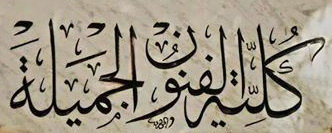 كُلِّيَّة الفنون الجميلة